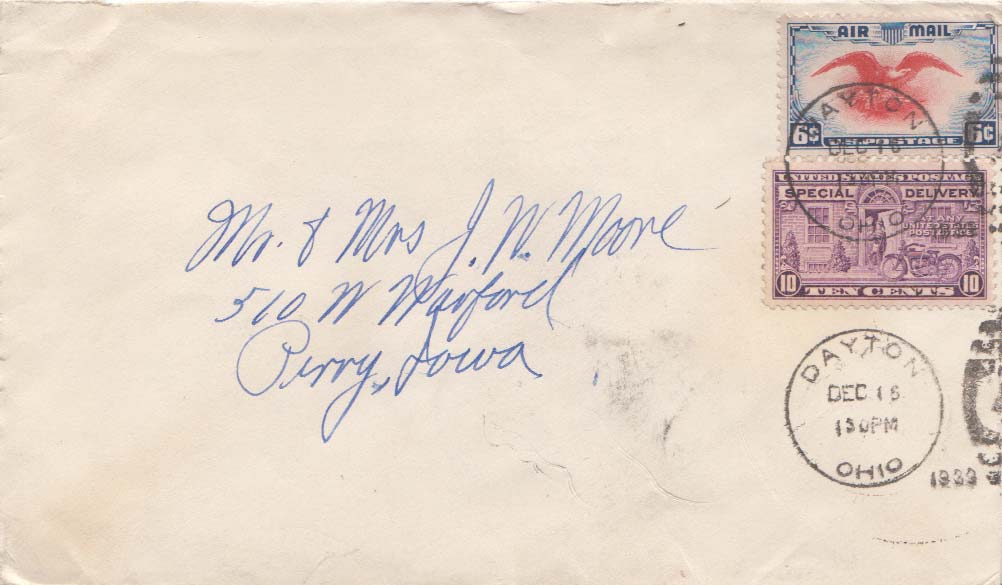 AIR MAIL
6¢ 6¢
U.S. POSTAGE
UNITED STATES POSTAGE
SPECIAL DELIVERY
AT ANY
UNITED STATES
POST OFFICE
10 10
TEN CENTS
DAYTON
DEC 16
OHIO
Mr. & Mrs J. W. Moore
510 W
Perry, Iowa
DAYTON
DEC 16
130PM
OHIO